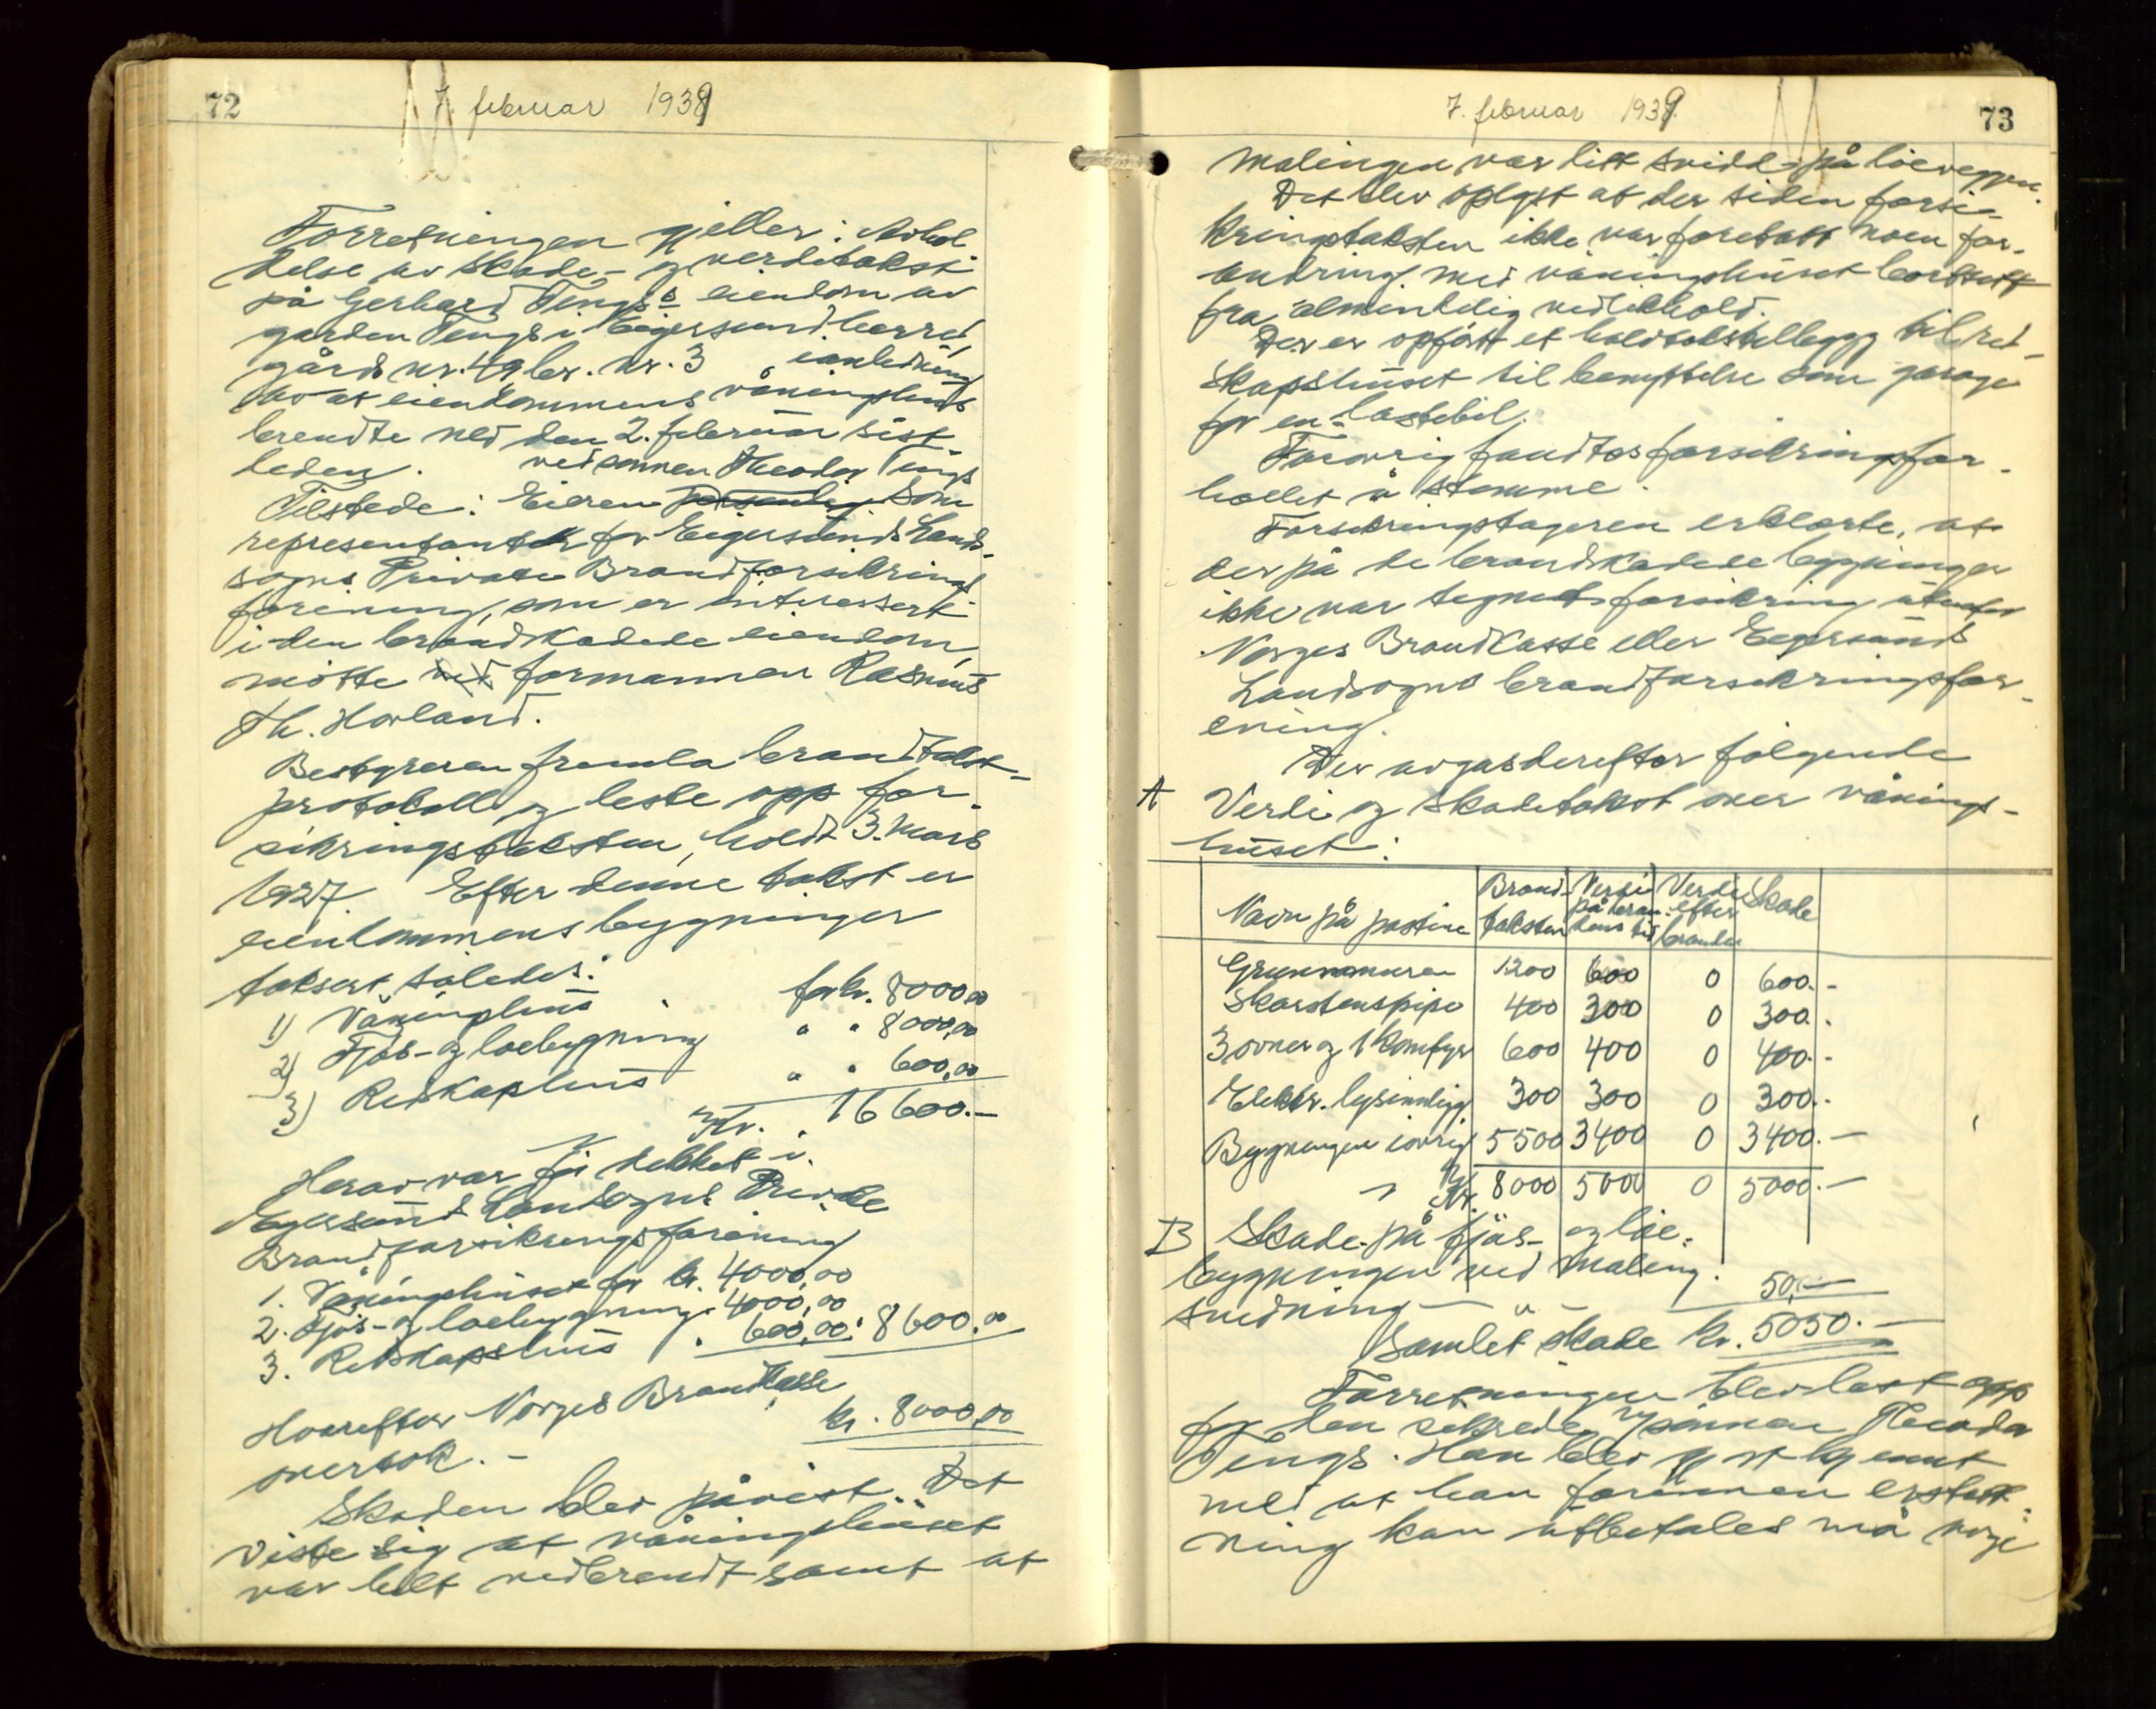 72
7. februar 1939
Forretningen gjeller: Avhol
delse av skade- og verditakst
på Gerhard Tengs's eiendom av
garden Tengs i Eigersund herred,
gårds nr. 49 br. nr. 3 i anledning
av at eiendommens våningshus
brendte ned den 2. februar sist
leden.
ved sønnen Theodor Tengs
Tilstede: Eieren personlig. Som
representant for Eigersunds Land-
sogns Private Brandforsikrings
forening, som er interessert
i den brandskadede eiendom,
møtte ved formannen Rasmus
Th. Hovland.
Bestyreren fremla brandtakst-
protokoll og leste opp for-
sikringstaksten, holdt 3. mars
1927. Efter denne takst er
eiendommens bygninger
taksert således:
1) Våningshus for kr. 8000,00
2) Fjøs- og løebygning " " 8000,00
3) Redskapshus " " 600,00
Kr. 16600.-
Herav var før dekket i
Egersund Landsogns Private
Brandforsikringsforening
1. Våningshuset for kr. 4000,00
2. Fjøs- og løebygning " 4000,00
3. Redskapshus " 600,00: 8600,00
Hvorefter Norges Brandkasse
overtok.- kr. 8000,00
Skaden blev påvist. Det
viste sig at våningshuset
var helt nedbrendt samt at
7. februar 1939
73
malingen var litt svidd på løeveggen.
Det blev oplyst at der siden forsi-
kringstaksten ikke var foretatt noen for-
andring med våningshuset bortsett
fra almindelig vedlikehold.
Der er opført et tillegg til red-
skapshuset til benyttelse som garage
for en lastebil.
Forøvrig fandtes forsikringsfor-
holdet å stemme.
Forsikringstageren erklærte, at
der på de brandskadede bygninger
ikke var tegnet forsikring utenfor
Norges Brandkasse eller Egersund
Landsogns brandforsikringsfor-
ening.
Der avgas derefter følgende
A Verdi og skadetakst over vånings-
huset:
Navn på postene Brand- taksten Verdi på bran- dens tid Verdi efter branden Skade
Grunnmuren 1200 600 0 600.-
Skorstenspipe 400 300 0 300.-
3 ovner og 1 komfyr 600 400 0 400.-
Elektr. lysinnlegg 300 300 0 300.-
Bygningen iøvrig 5500 3400 0 3400.-
Kr. 8000 5000 0 5000.-
B Skade på fjøs- og løe-
bygningen ved maling-
svidning - " - 50,-
Samlet skade kr. 5050.-
Forretningen blev lest opp
for den sikrede v/sønnen Theodor
Tengs. Han blev gjort kjennt
med at han forinnen erstatt-
ning kan utbetales må